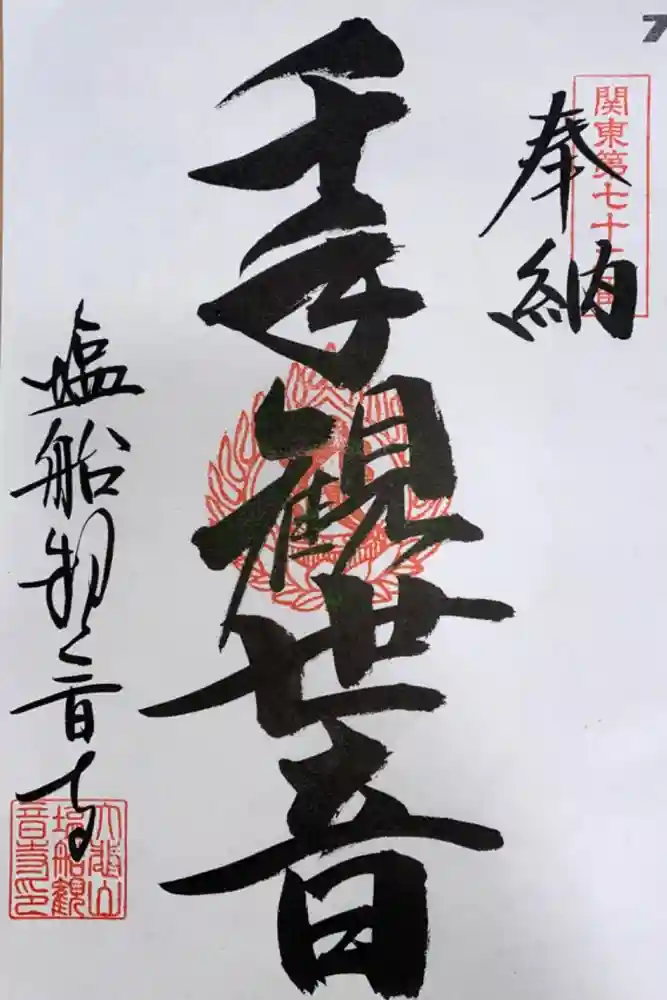 奉納
関東第七十二番
千手観世音
塩船観音寺
大悲山塩船観音寺印
7